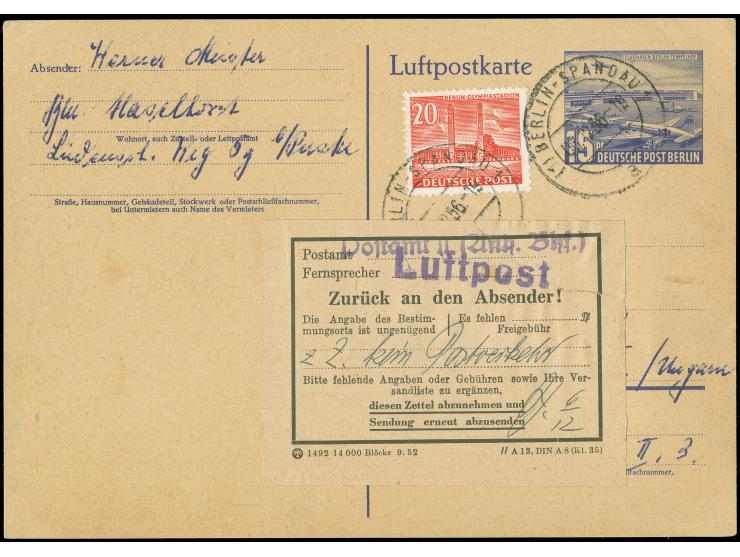 Absender: Werner
Bln Haselhorst
Wohnort, auch Zustell- oder Leitpostamt
Straße, Hausnummer, Gebäudeteil, Stockwerk oder Postschließfachnummer,
bei Untermietern auch Name des Vermieters
Luftpostkarte
FLUGHAFEN BERLIN-TEMPELHOF
15 PF
DEUTSCHE POST BERLIN
(1) BERLIN-SPANDAU 1
20
BERLIN-OLYMPIASTADION
DEUTSCHE POST
RLIN-SPANDAU 1
956-12
Postamt
Postamt 11 (Anh. Bhf.)
Fernsprecher
Luftpost
Zurück an den Absender!
Die Angabe des Bestim- Es fehlen
mungsorts ist ungenügend Freigebühr
z Z. kein Postverkehr
Bitte fehlende Angaben oder Gebühren sowie Ihre Ver-
sandliste zu ergänzen,
diesen Zettel abzunehmen und
Sendung erneut abzusenden
6/12
1492 14000 Blöcke 9. 52 // A 13, DIN A 8 (Kl. 35)
/Ungarn
II. 3.
fachnummer,